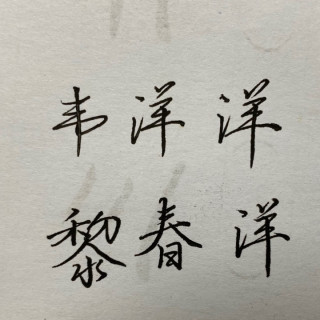 韦洋洋
黎春洋